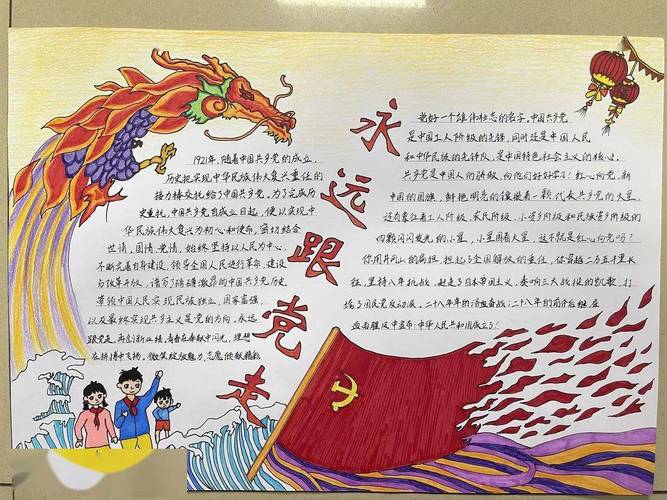 永远跟党走
1921年，随着中国共产党的成立，
历史把实现中华民族伟大复兴重任的
接力棒交托给了中国共产党。为了完成历
史重托，中国共产党自成立日起，便以实现中
华民族伟大复兴为初心和使命，密切结合
世情、国情、党情，始终坚持以人民为中心，
不断完善自身建设，领导全国人民进行革命、建设
与改革开放，谱写了磅礴激昂的中国共产党历史
带领中国人民实现民族独立，国家富强，
以及最终实现共产主义是党的方向。永远
跟党走，再创新业绩，青春在奉献中闪光，理想
在拼搏中飞扬，微笑绽放魅力，志愿
党好一个雄伟壮志的名字。中国共产党
是中国工人阶级的先锋，同时还是中国人民
和中华民族的先锋队，是中国特色社会主义的核心。
共产党是中国人的骄傲，向他们好好学习！红心向党，新
中国的国旗，鲜艳明亮的镶嵌着一颗代表共产党的大星，
还有象征着工人阶级、农民阶级、小资产阶级和民族资产阶级的
四颗闪闪发光的小星，小星围着大星，这不就是红心向党吗？
你用井冈山的扁担，担起了全国解放的重任，你穿越二万五千里长
征，坚持八年抗战，赶走了日本帝国主义，奏响三大战役的凯歌，打
垮了国民党反动派，二十八年的浴血奋战，二十八年的前仆后继，在
血与腥风中宣布：中华人民共和国成立了！